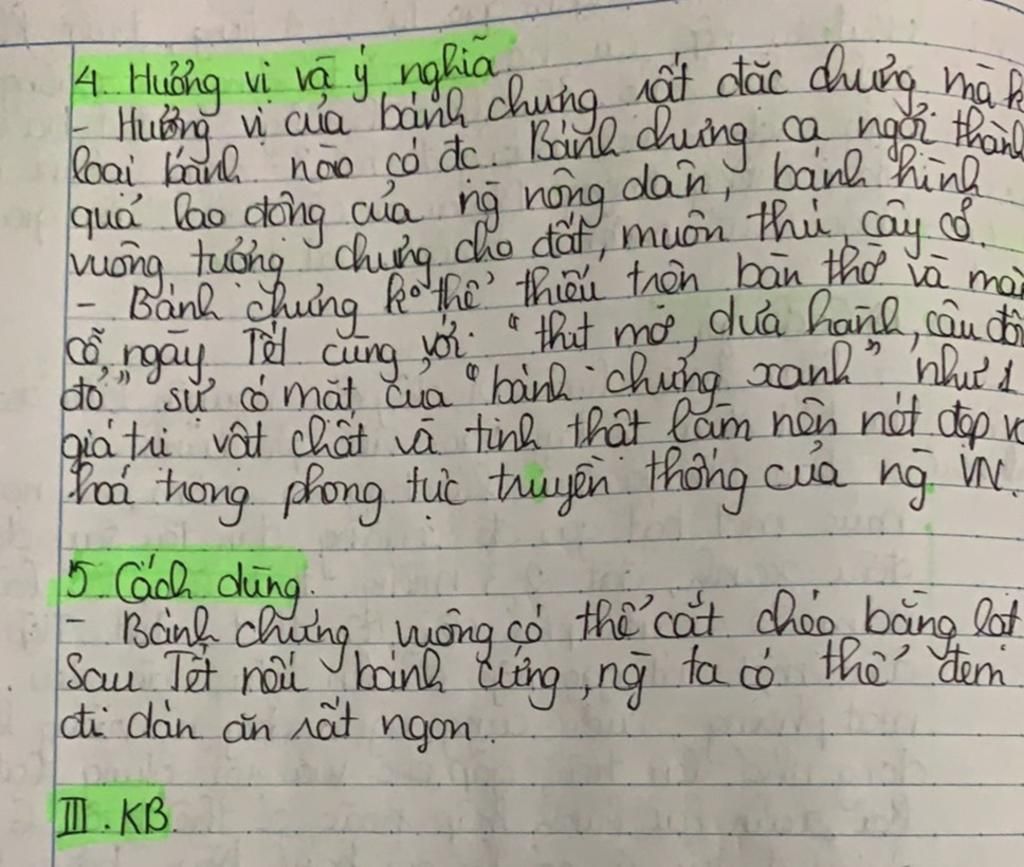 4. Hương vị và ý nghĩa
- Hương vị của bánh chưng rất đặc chưng mà k
loại bánh nào có đc. Bánh chưng ca ngợi thành
quả lao động của ng nông dân, bánh hình
vuông tượng chưng cho đất, muôn thú, cây cỏ.
- Bánh chưng ko thể thiếu trên bàn thờ và mâ
cỗ, ngày Tết cùng với "thịt mỡ, dưa hành, câu đối
đỏ" sự có mặt của "bánh chưng xanh" như 1
giá trị vật chất và tinh thật làm nên nét đẹp v
hoá trong phong tục truyền thống của ng VN.
5. Cách dùng.
- Bánh chưng vuông có thể cắt chéo bằng lạt
Sau Tết nếu bánh cứng, ng ta có thể đem
đi dán ăn rất ngon.
III. KB.